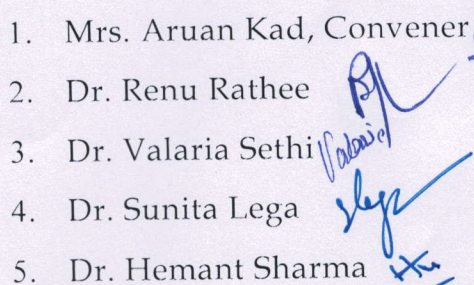 1. Mrs. Aruan Kad, Convener
2. Dr. Renu Rathee
3. Dr. Valaria Sethi
4. Dr. Sunita Lega
5. Dr. Hemant Sharma